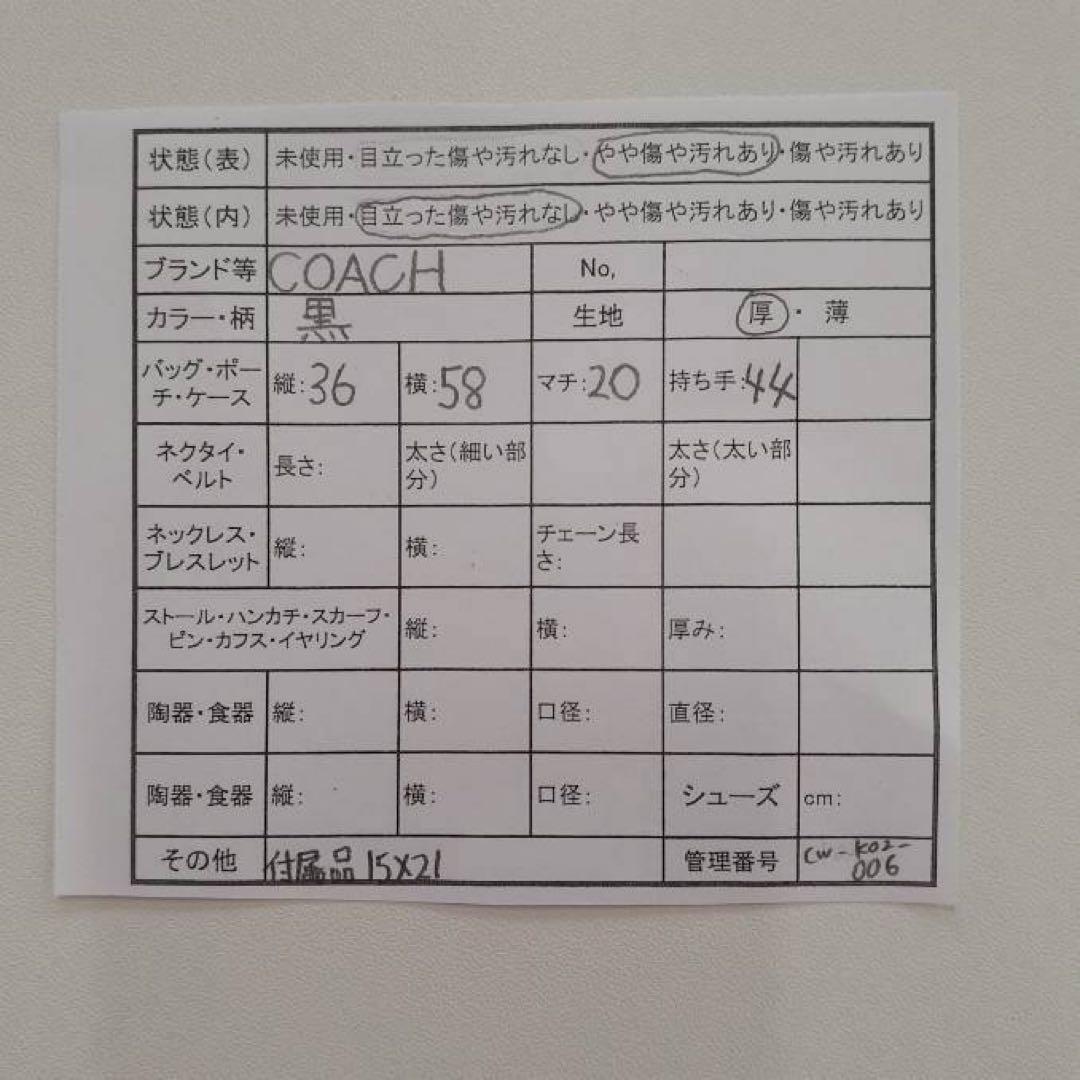 状態(表) 未使用・目立った傷や汚れなし・やや傷や汚れあり・傷や汚れあり
状態(内) 未使用・目立った傷や汚れなし・やや傷や汚れあり・傷や汚れあり
ブランド等 COACH No,
カラー・柄 黒 生地 厚・薄
バッグ・ポー
チ・ケース 縦:36 横:58 マチ:20 持ち手:44
ネクタイ・
ベルト 長さ: 太さ(細い部
分) 太さ(太い部
分)
ネックレス・
ブレスレット 縦: 横: チェーン長
さ:
ストール・ハンカチ・スカーフ・
ピン・カフス・イヤリング 縦: 横: 厚み:
陶器・食器 縦: 横: 口径: 直径:
陶器・食器 縦: 横: 口径: シューズ cm:
その他 付属品 15X21 管理番号 CW-K02-
006